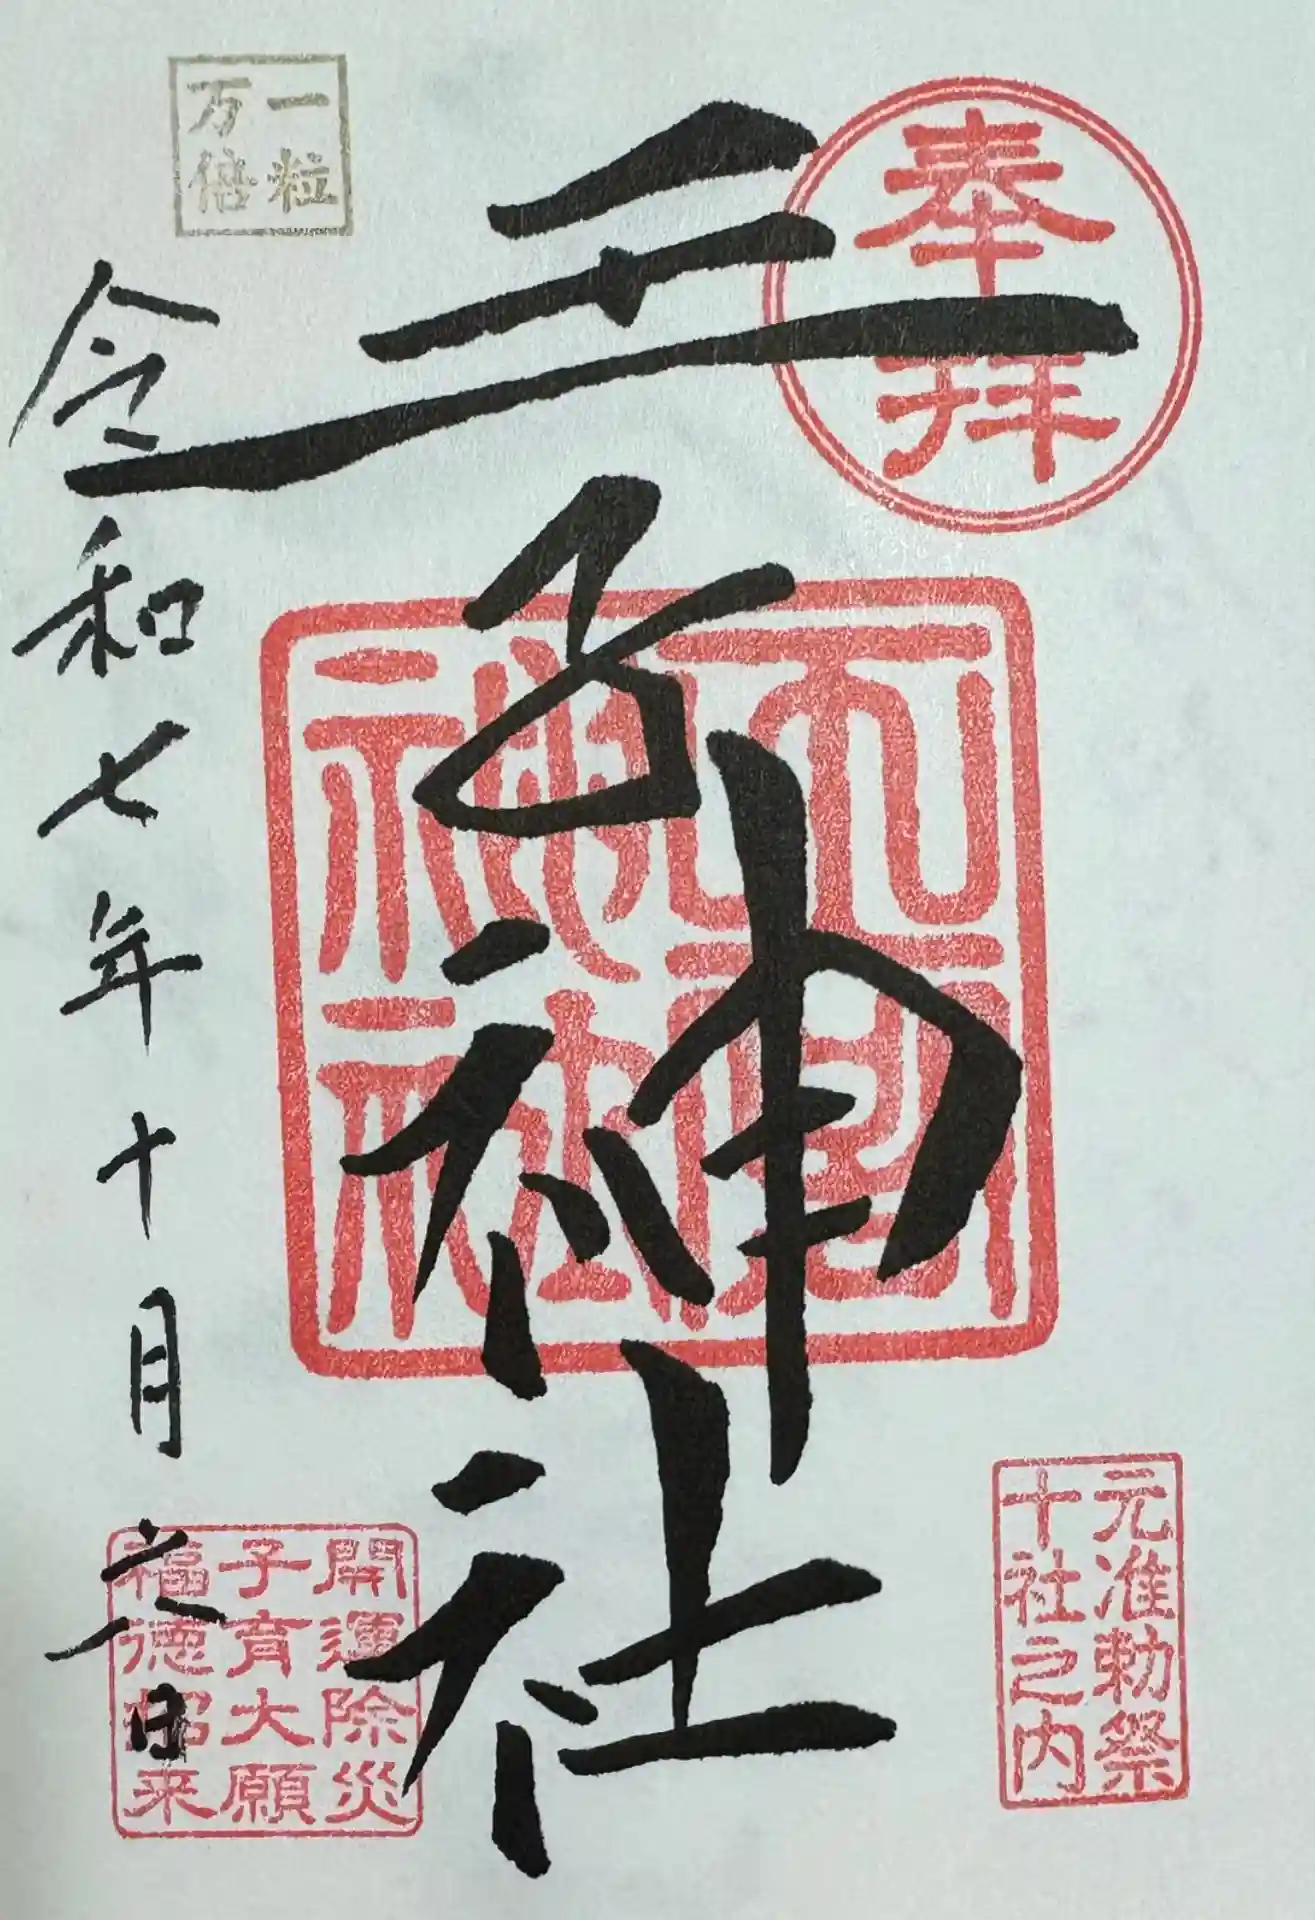 奉拝
元准勅祭
十社之内
王子神社
神社
一粒
万倍
令和七年十月 日
開運除災
子育大願
福徳招来